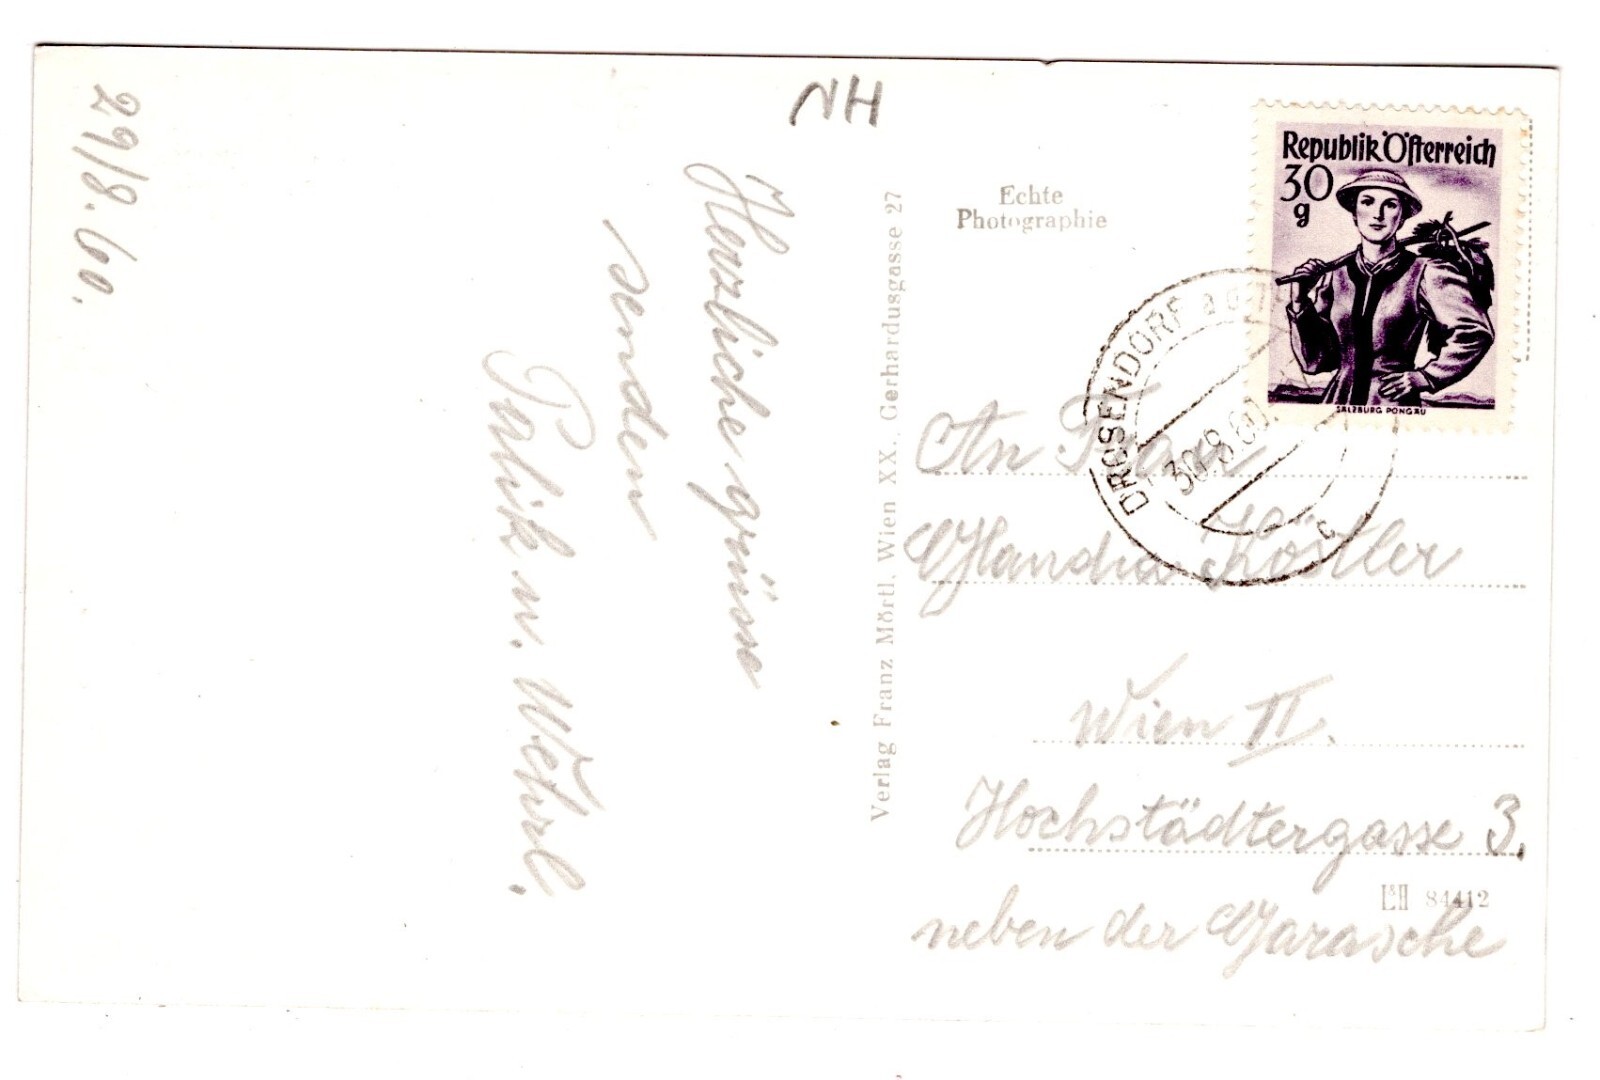 29/8. 60.
NH
Herzliche grüsse
senden
Palik u. Wehrl.
Verlag Franz Mörtl, Wien XX., Gerhardusgasse 27
Echte
Photographie
Republik Österreich
30
g
SALZBURG PONGAU
DROSENDORF a d
30.8.60
c
An Frau
Köstler
Wien II.
Hochstädtergasse 3.
L&H 84412
neben der Garasche